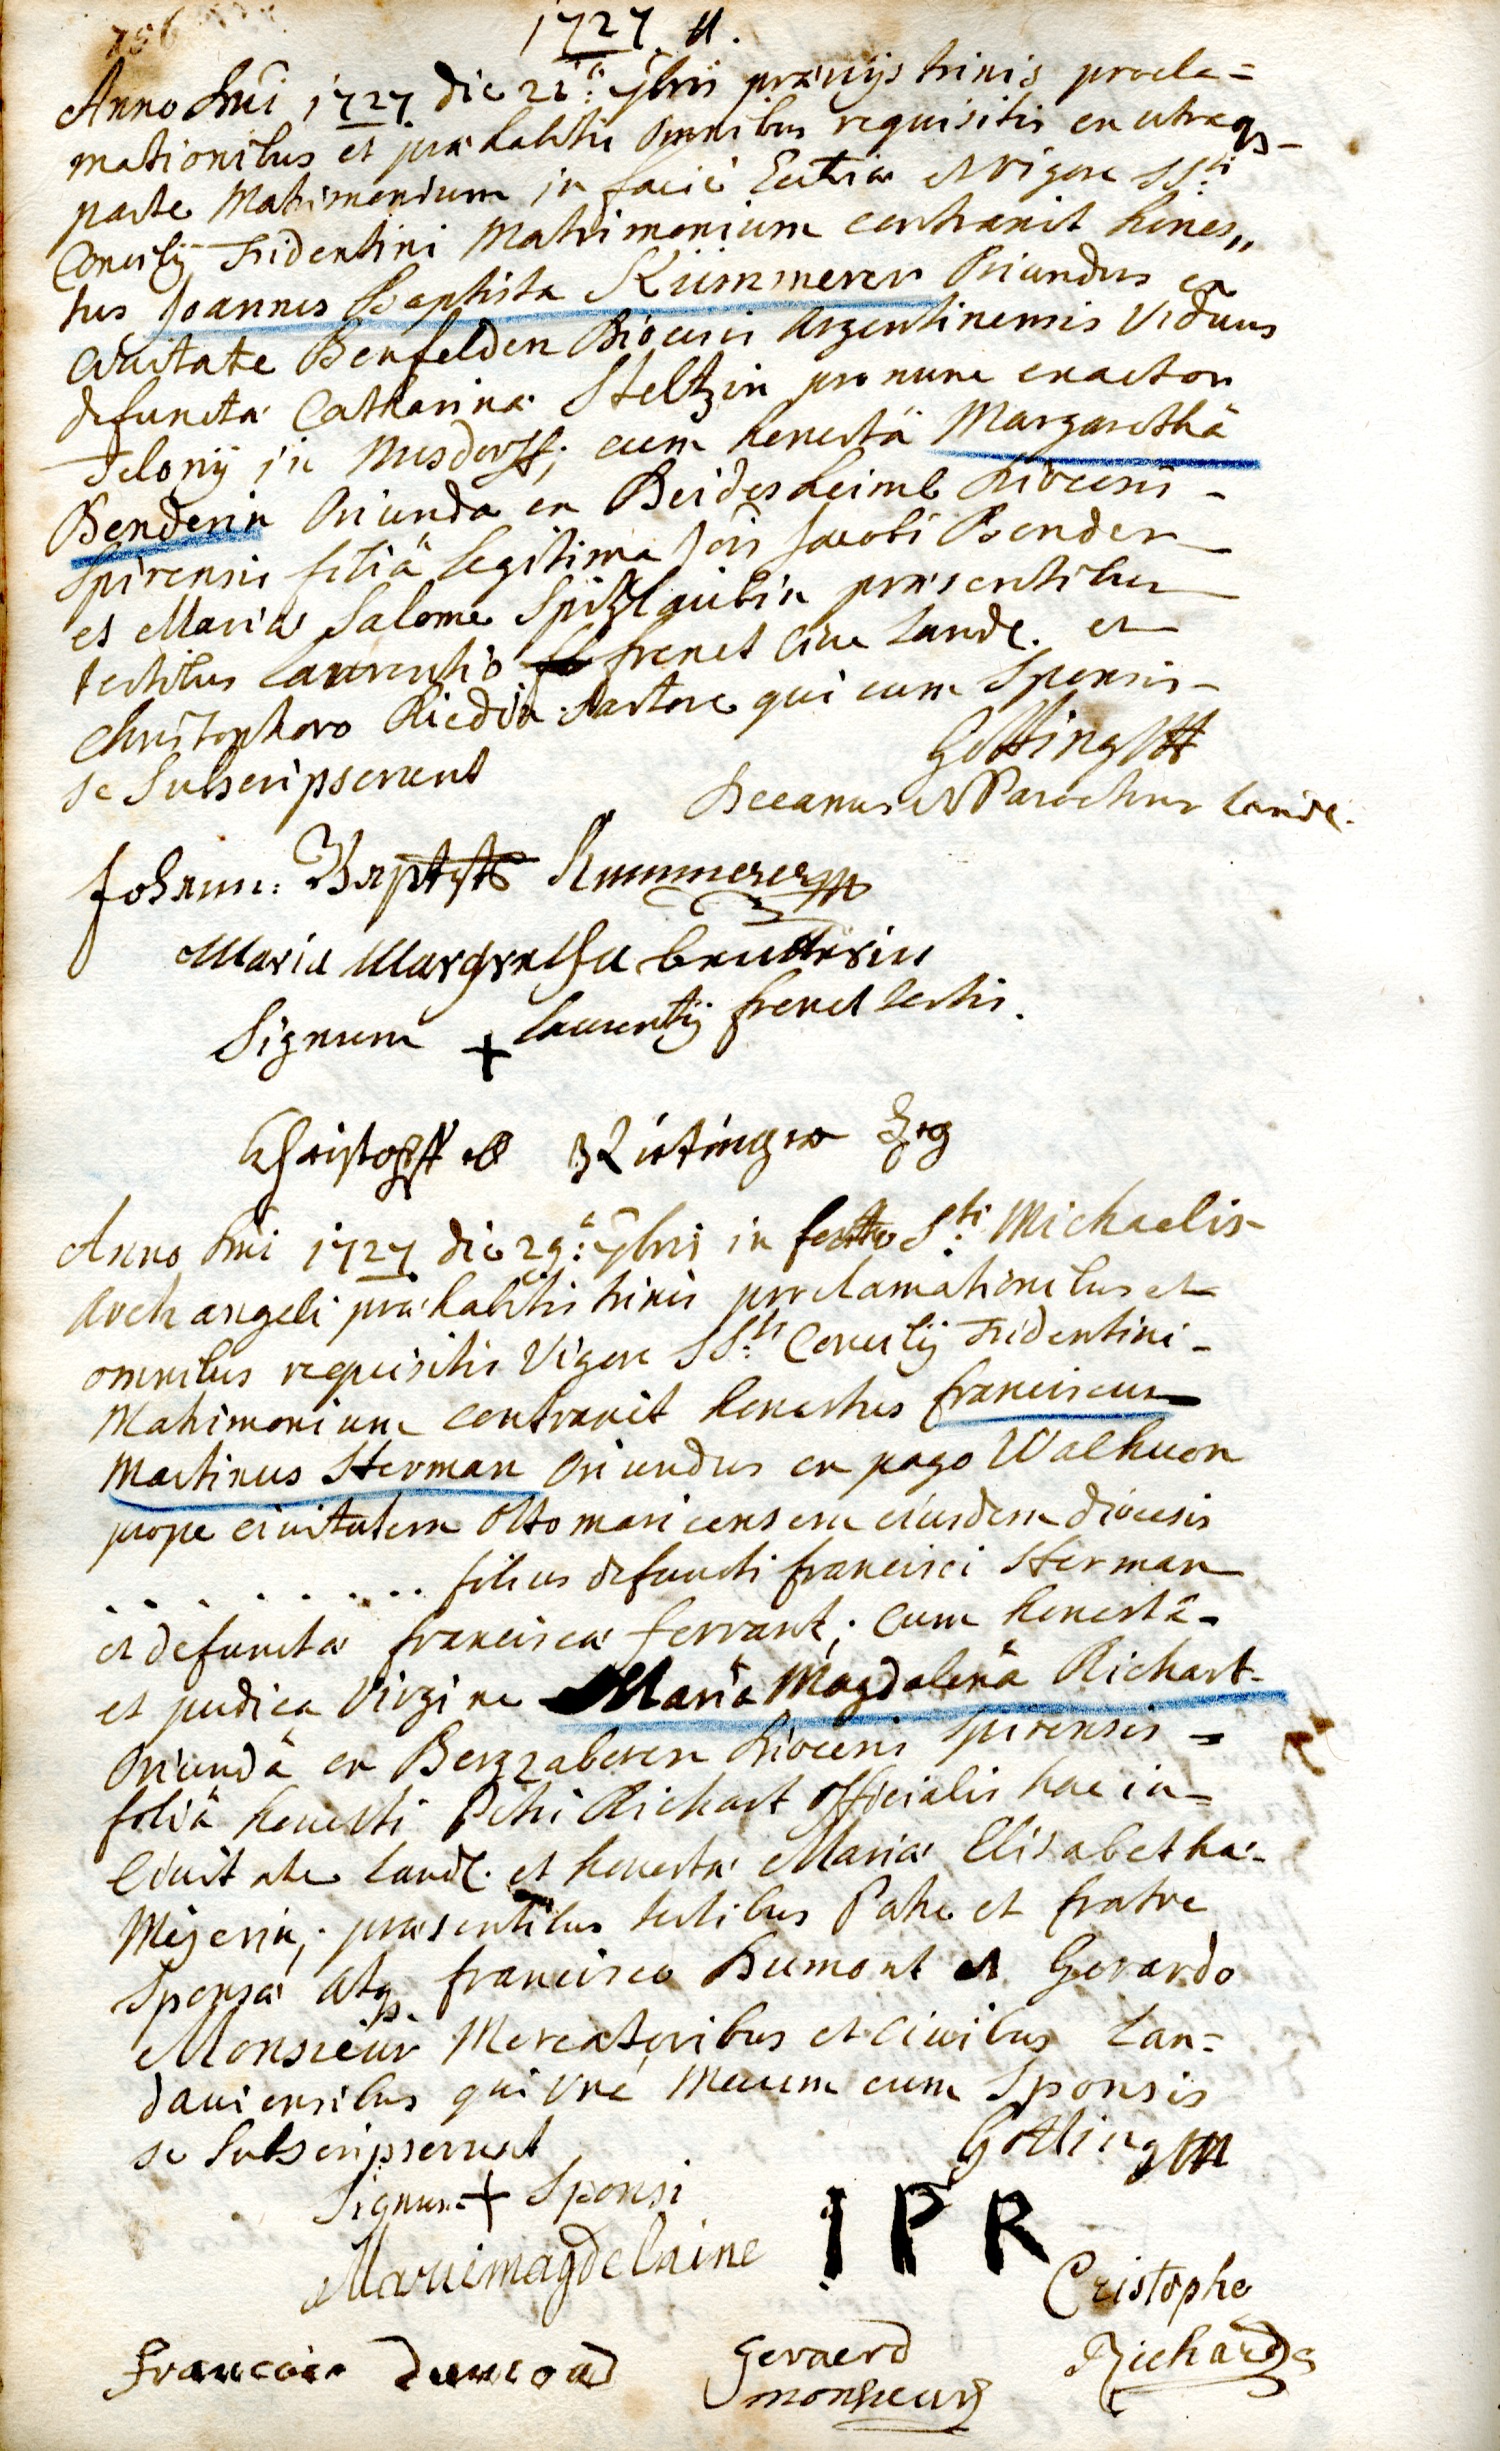 756
1727. 11.
Anno Dni 1727 die 21ª: 7bris prævijs trinis procla=
mationibus et præhabitis omnibus requisitis ex utraqs
parte Matrimonium in facie Ecclia et vigore SSti
Concilij Tridentini Matrimonium contraxit hones,,
tus Joannes Baptista Kümmerer Oriundus ex
Civitate Benfelden Diœcesis Argentinensis Viduus
defunctæ Catharinæ Steltzin pro nunc exactor
Telonij in Nusdorff; cum honestâ Margarethâ
Benderin Oriunda ex Deidesheimb Diœcesis -
Spirensis filiâ legitima Jois Jacobi Bender
et Mariæ Salome Spitzlaubin præsentibus
testibus Laurentio frenet Cive Landt. et
Christophoro Riedin: Sartore qui cum Sponsis -
se Subscripserunt
Gotting
Decanus et Parochus Landt.
Johann: Baptysta Kummerer
Maria Margretha benderin
Signum + Laurentij frenet testis.
Christoff Rietinger Zeg
Anno Dni 1727 die 29ª: 7bris in festo Sti Michaelis
Archangeli præhabitis trinis proclamationibus et
omnibus requisitis Vigore SSti Concilij Tridentini -
Matrimonium contraxit honestus franciscus
Martinus Sterman Oriundus ex pago Walhuon
prope civitatem Ottomaricensem eiusdem diœcesis
. . . . . . . . . . filius defuncti francisci Sterman
et defunctæ franciscæ ferrant; cum honestâ -
et pudica Virgine Mariâ Magdalenâ Richart-
Oriundâ ex Bergzaberen Diœcesis Spirensis =
filiâ honesti Petri Richart Officialis hac in -
Civitate Landt. et honestæ Mariæ Elisabethæ -
Meyerin; præsentibus testibus Patre et fratre
Sponsæ atqs francisco Dumont et Gerardo
Monsieur Mercatoribus et Civibus Lan=
daviensibus qui una Mecum cum Sponsis
se Subscripserunt
Gotting
Signum + Sponsi
Mariemagdelaine I P R
Cristophe
Richards
francois dumond
Geraerd
monsieur